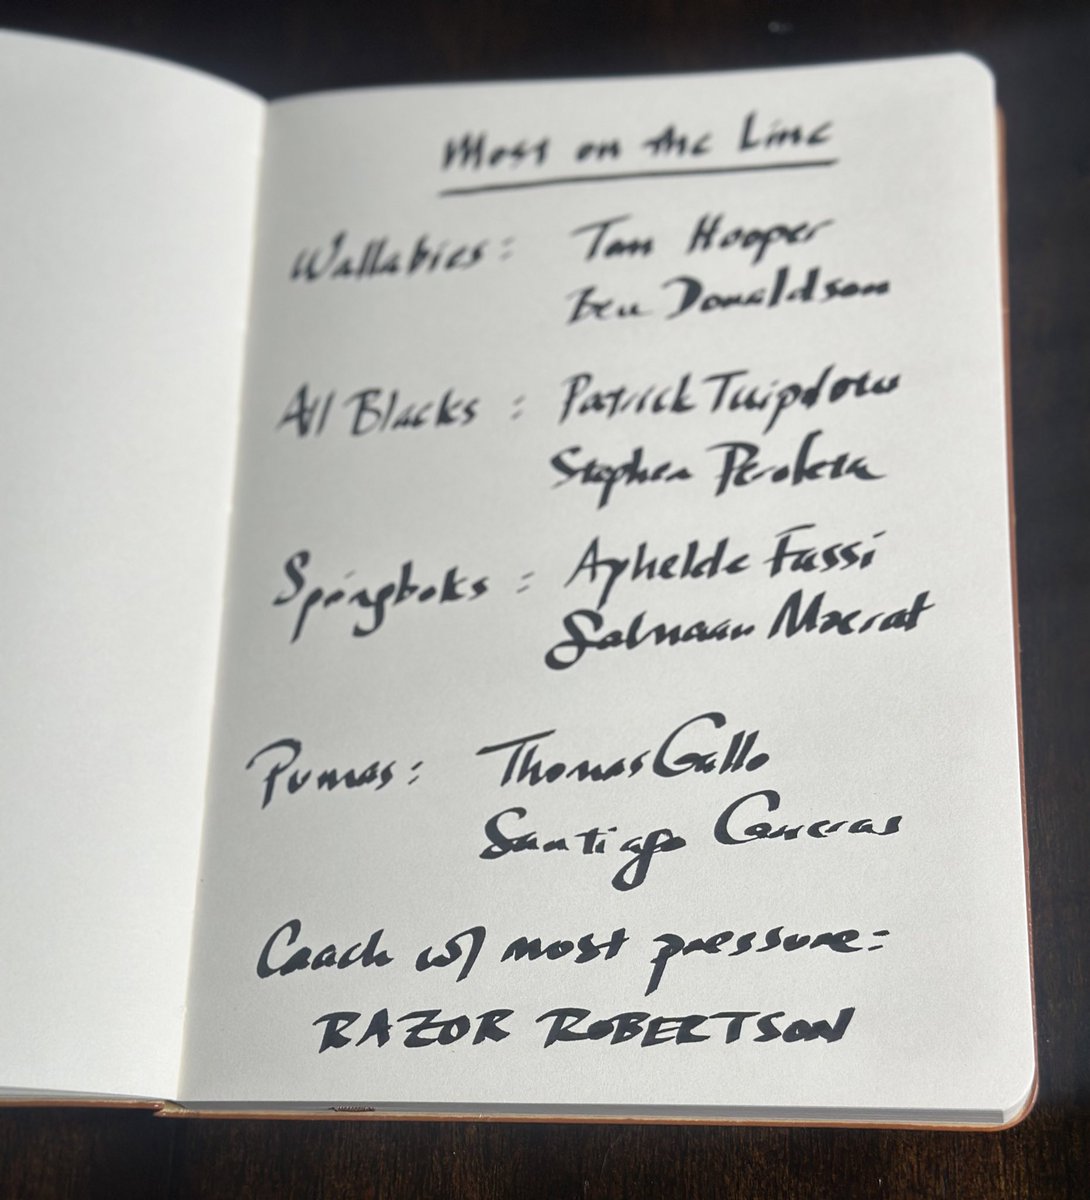 Most on the Line
Wallabies: Tom Hooper
Ben Donaldson
All Blacks: Patrick Tuipulotu
Stephen Perofeta
Springboks: Aphelele Fassi
Salmaan Moerat
Pumas: Thomas Gallo
Santiago Carreras
Coach w/ most pressure:
RAZOR ROBERTSON